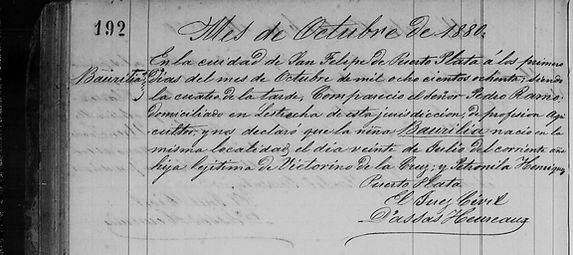 192
Mes de Octubre de 1880.
En la ciudad de San Felipe de Puerto Plata á los primero
Baurilia dias del mes de Octubre de mil ocho cientos ochenta; siendo
la cuatro de la tarde, Comparecio el señor Pedro Ramo;
domiciliado en de esta jurisdiccion, de profesion Agri
cultor, y nos declaró que la niña Baurilia nacio en la
misma localidad, el dia veinte de Julio del corriente año
hija legitima de Victorino de la Cruz; y Petronila Henriquez
Puerto Plata
El Juez Civil
D'assas Heureaux